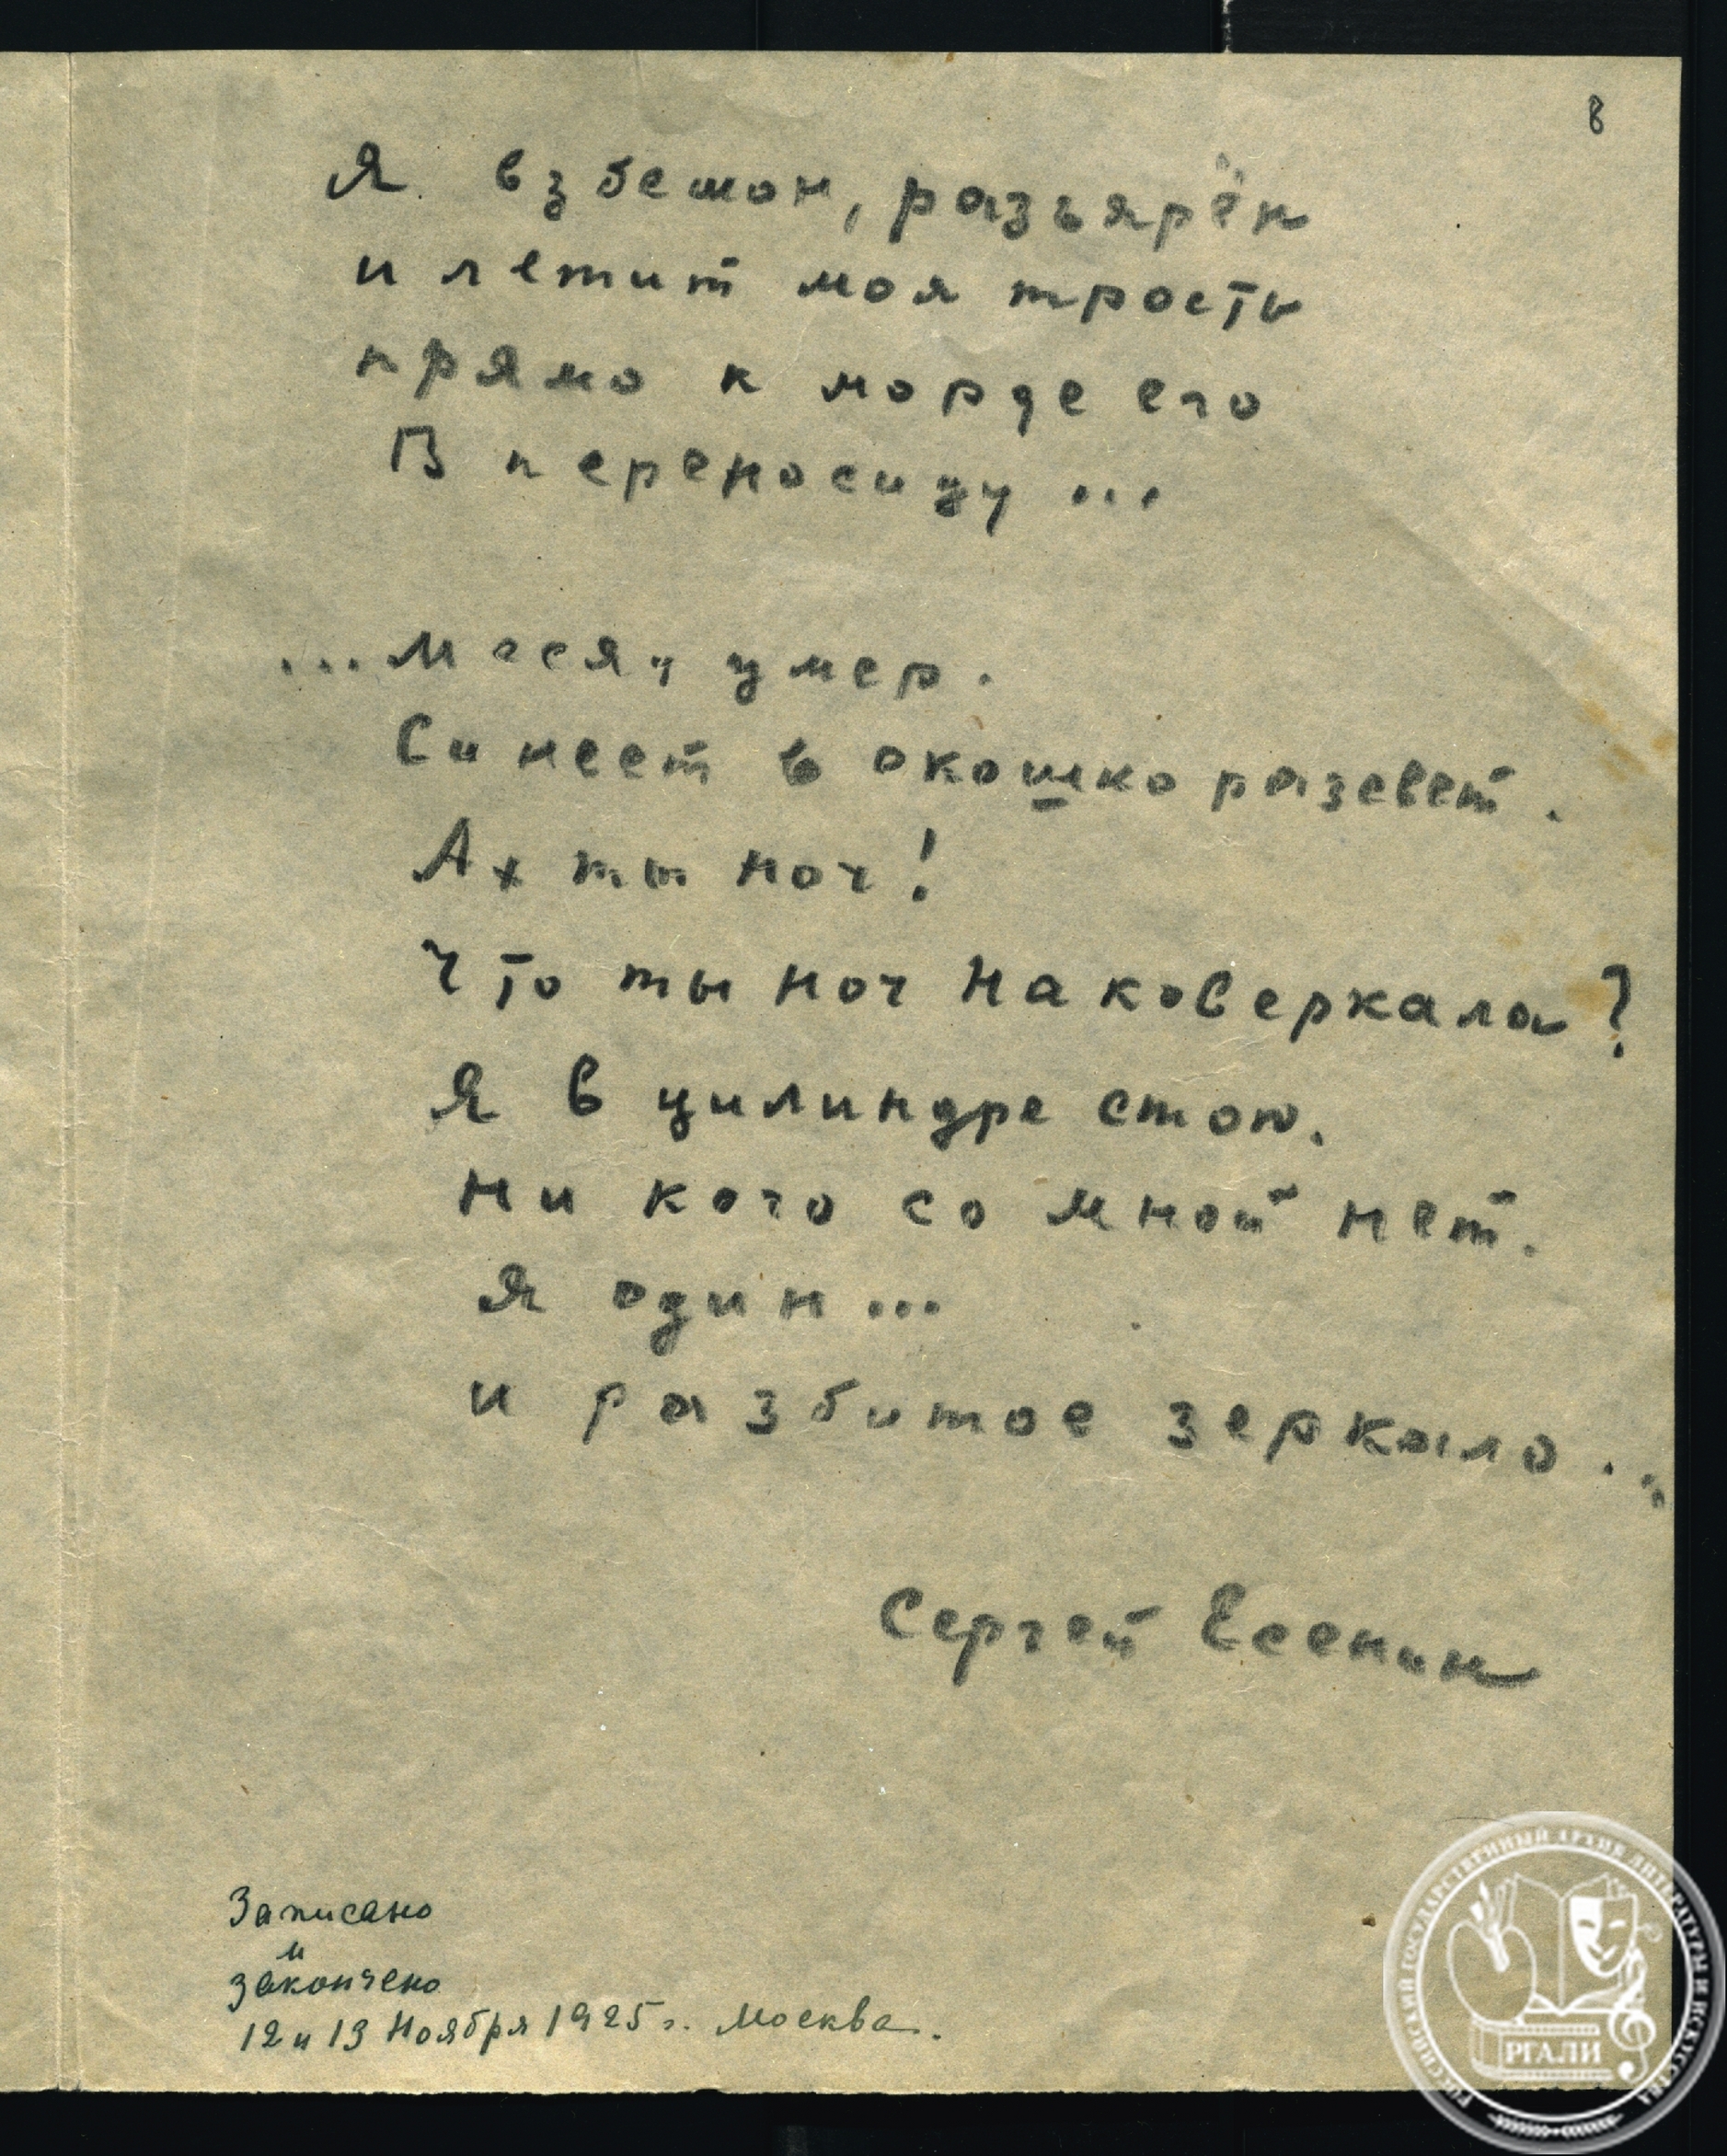 8
Я взбешон, разъярён
и летит моя трость
прямо к морде его
В переносицу...
...Месяц умер.
Синеет в окошко разсвет.
Ах ты ноч!
Что ты ноч наковеркала?
Я в цилиндре стою.
Ни кого со мной нет.
Я один...
и разбитое зеркало...
Сергей Есенин
Записано
и
закончено
12 и 13 Ноября 1925 г. Москва.
РОССИЙСКИЙ ГОСУДАРСТВЕННЫЙ АРХИВ ЛИТЕРАТУРЫ И ИСКУССТВА
РГАЛИ